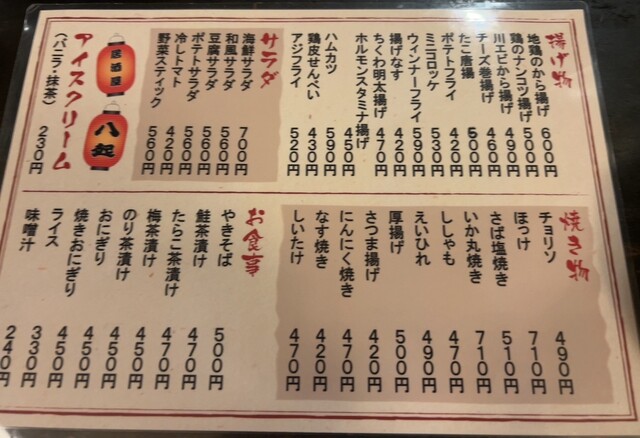 揚げ物
地鶏のから揚げ 600円
鶏のナンコツ揚げ 500円
川エビから揚げ 490円
チーズ巻揚げ 460円
たこ唐揚 500円
ポテトフライ 420円
ミニコロッケ 530円
ウィンナーフライ 590円
揚げなす 420円
ちくわ明太揚げ 470円
ホルモンスタミナ揚げ 450円
ハムカツ 590円
鶏皮せんべい 430円
アジフライ 520円
サラダ
海鮮サラダ 700円
和風サラダ 560円
豆腐サラダ 560円
ポテトサラダ 560円
冷しトマト 420円
野菜スティック 560円
居酒屋
八起
アイスクリーム
(バニラ・抹茶) 230円
焼き物
チョリソ 490円
ほっけ 710円
さば塩焼き 510円
いか丸焼き 710円
ししゃも 470円
えいひれ 490円
厚揚げ 500円
さつま揚げ 420円
にんにく焼き 470円
なす焼き 420円
しいたけ 470円
お食事
やきそば 500円
鮭茶漬け 470円
たらこ茶漬け 470円
梅茶漬け 450円
のり茶漬け 450円
おにぎり 450円
焼きおにぎり 450円
ライス 330円
味噌汁 240円